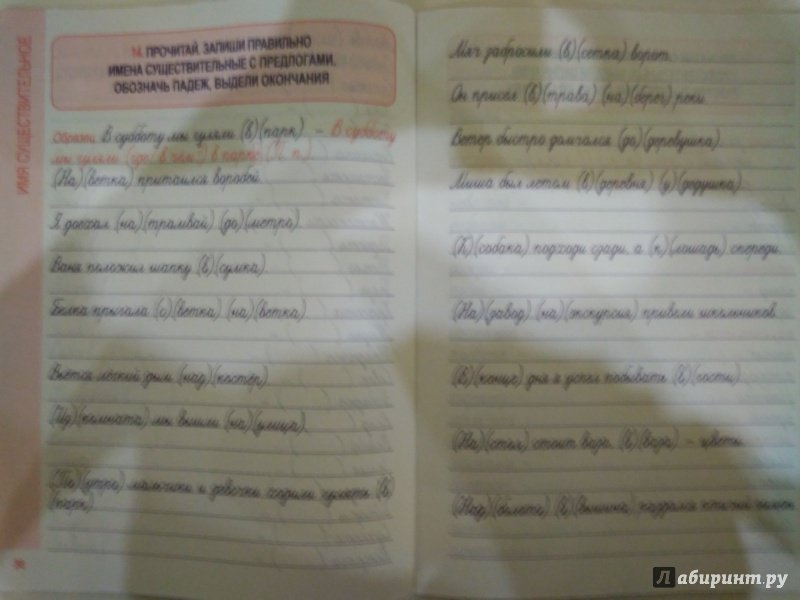 ИМЯ СУЩЕСТВИТЕЛЬНОЕ
14. ПРОЧИТАЙ. ЗАПИШИ ПРАВИЛЬНО
ИМЕНА СУЩЕСТВИТЕЛЬНЫЕ С ПРЕДЛОГАМИ,
ОБОЗНАЧЬ ПАДЕЖ, ВЫДЕЛИ ОКОНЧАНИЯ
Образец. В субботу мы гуляли (в) (парк). – В субботу
мы гуляли (где? в чём?) в парке (П. п.).
(На) (ветка) притаился воробей.
Я доехал (на) (трамвай) (до) (метро).
Ваня положил шапку (в) (сумка).
Белка прыгала (с) (ветка) (на) (ветка).
Вьётся лёгкий дым (над) (костёр).
(Из) (комната) мы вышли (на) (улица).
(По) (утро) мальчики и девочки ходили гулять (в)
(парк).
Мяч забросили (в) (сетка) ворот.
Он присел (в) (трава) (на) (берег) реки.
Ветер быстро домчался (до) (деревушка).
Миша был летом (в) (деревня) (у) (дедушка).
(К) (собака) подходи сзади, а (к) (лошадь) спереди.
(На) (завод) (на) (экскурсия) привели школьников.
(В) (конце) дня я успел побывать (в) (гости).
(На) (стол) стоит ваза, (в) (ваза) – цветы.
(Над) (болото) (в) (вышина) раздался птичий
Лабиринт.ру